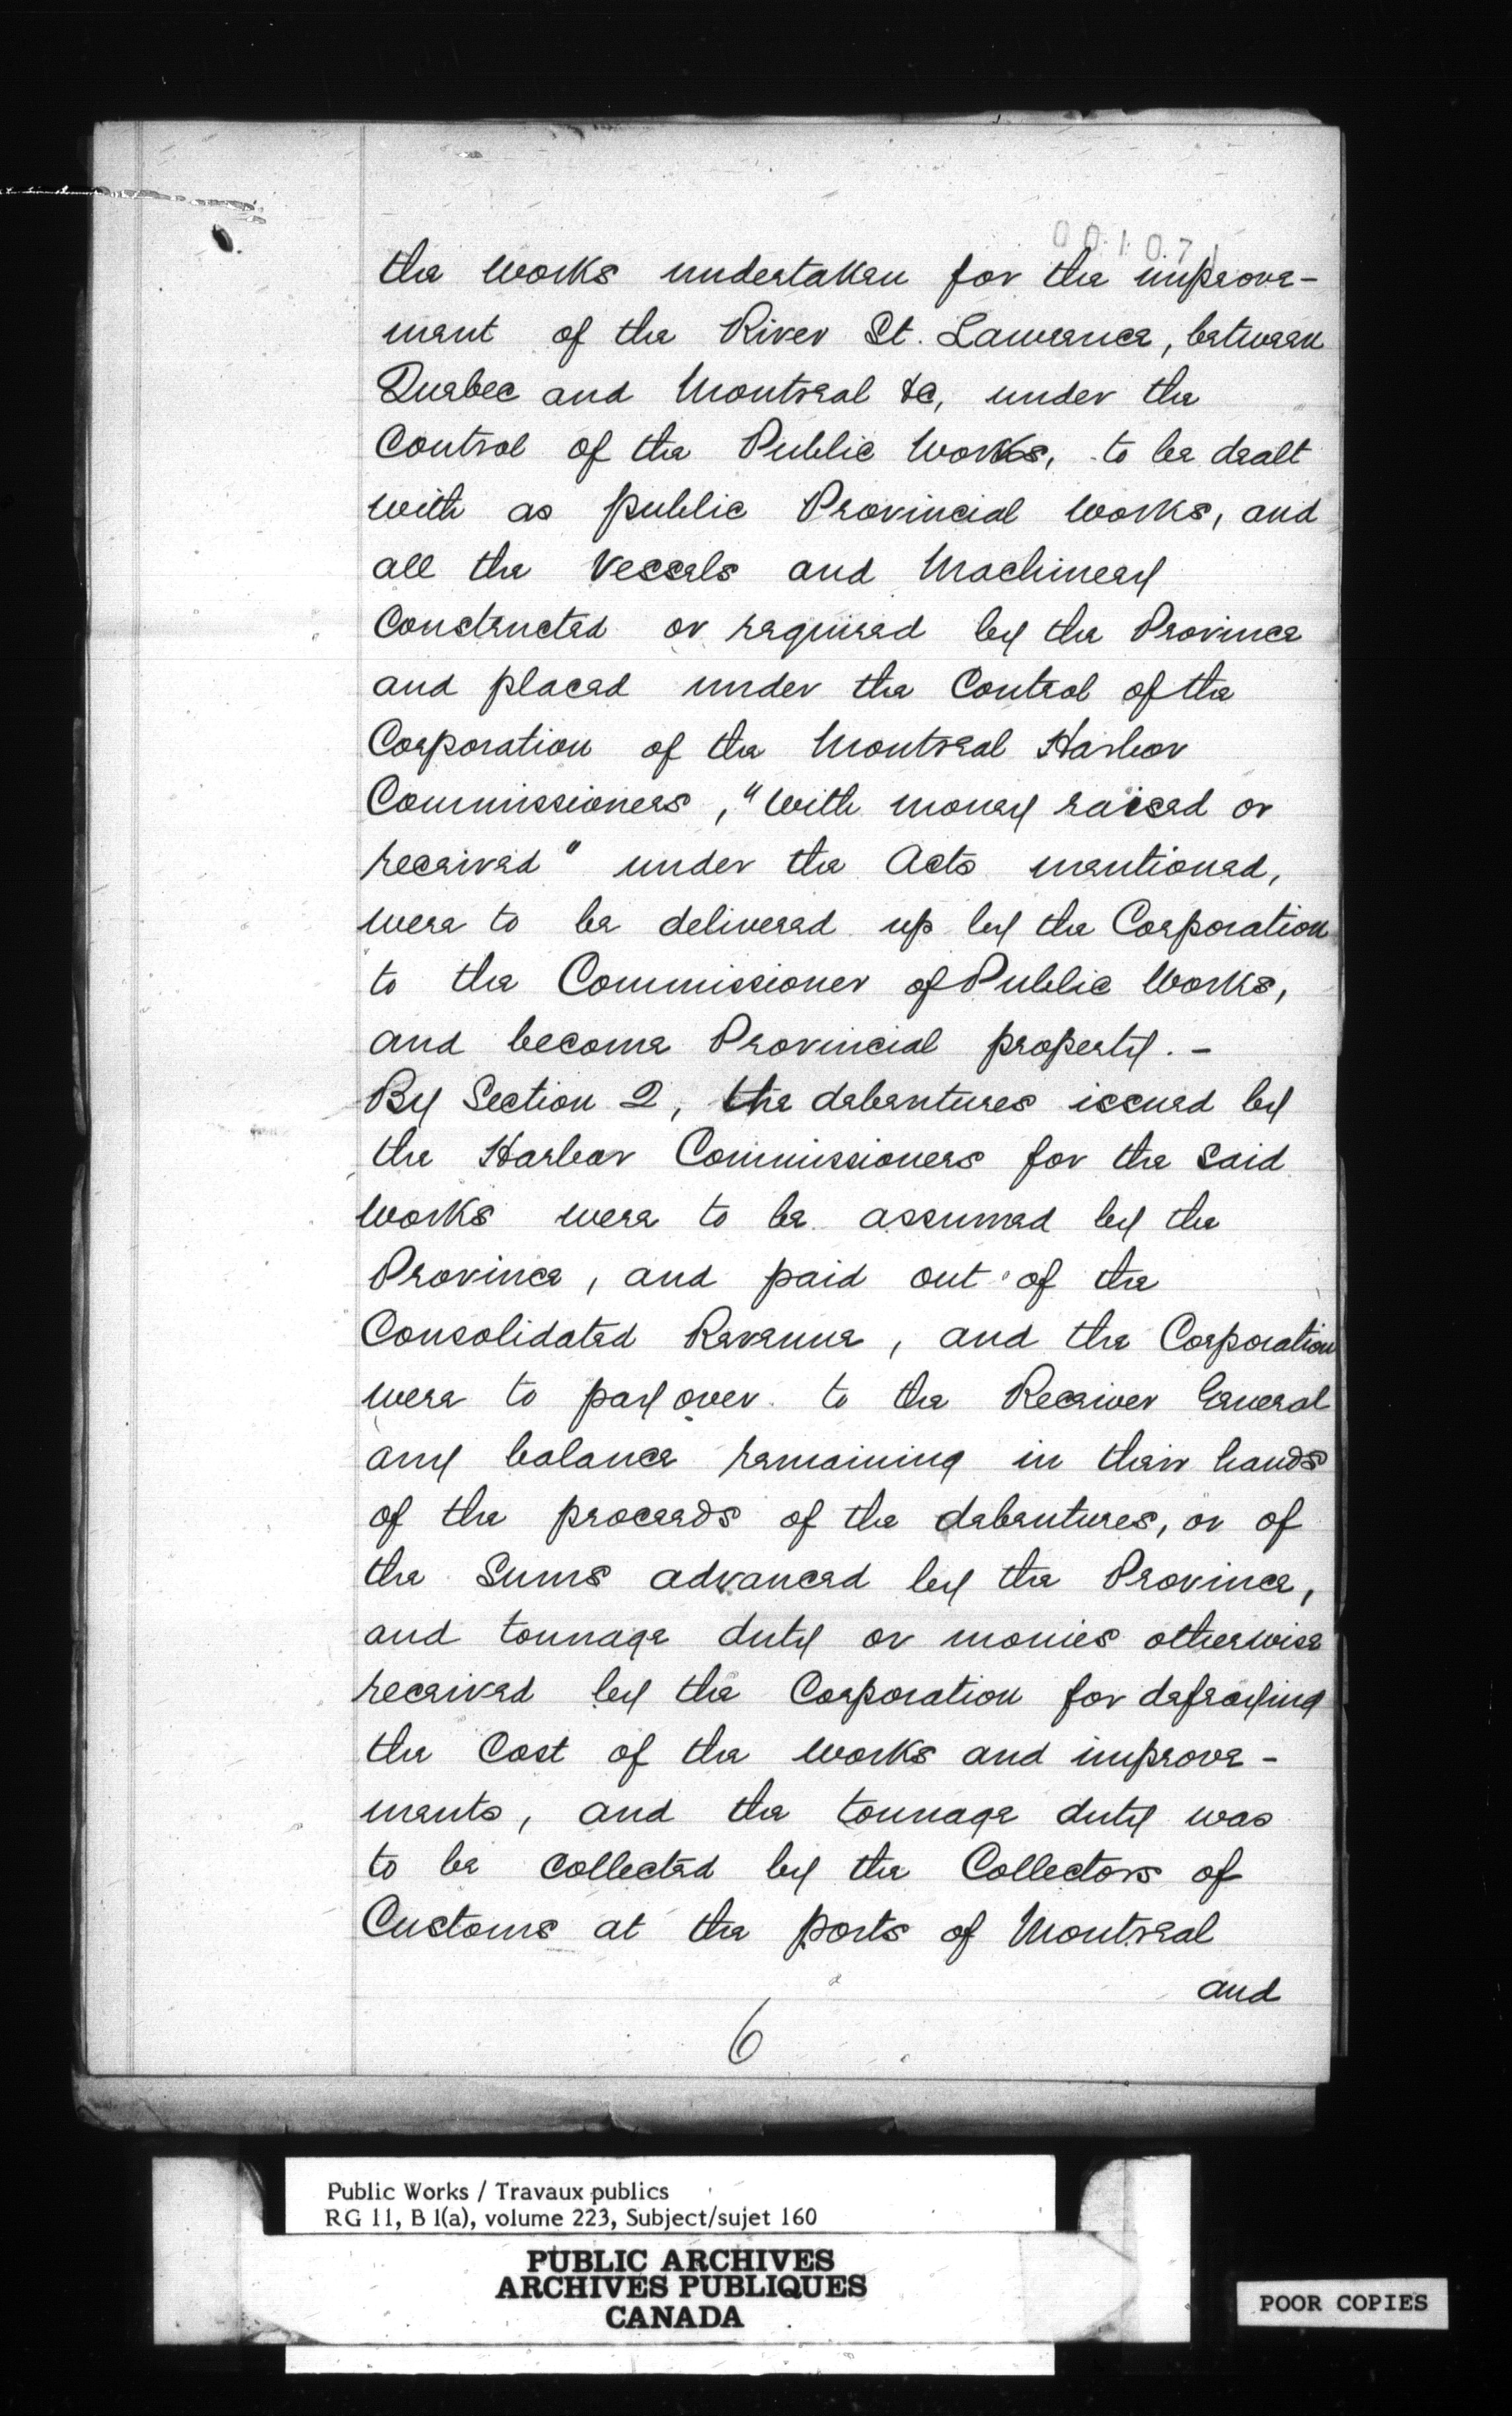 001071
the works undertaken for the improve-
ment of the River St. Lawrence, between
Quebec and Montreal &c, under the
Control of the Public Works, to be dealt
with as public Provincial works, and
all the Vessels and Machinery
Constructed or required by the Province
and placed under the Control of the
Corporation of the Montreal Harbor
Commissioners, "With money raised or
received" under the Acts mentioned,
were to be delivered up by the Corporation
to the Commissioner of Public Works,
and become Provincial property. -
By Section 2, the debentures issued by
the Harbor Commissioners for the Said
works were to be assumed by the
Province, and paid out of the
Consolidated Revenue, and the Corporation
were to pay over to the Receiver General
any balance remaining in their hands
of the proceeds of the debentures, or of
the Sums advanced by the Province,
and tonnage duty or monies otherwise
received by the Corporation for defraying
the Cost of the works and improve-
ments, and the tonnage duty was
to be Collected by the Collectors of
Customs at the ports of Montreal
and
6
Public Works / Travaux publics
RG 11, B 1(a), volume 223, Subject/sujet 160
PUBLIC ARCHIVES
ARCHIVES PUBLIQUES
CANADA
POOR COPIES